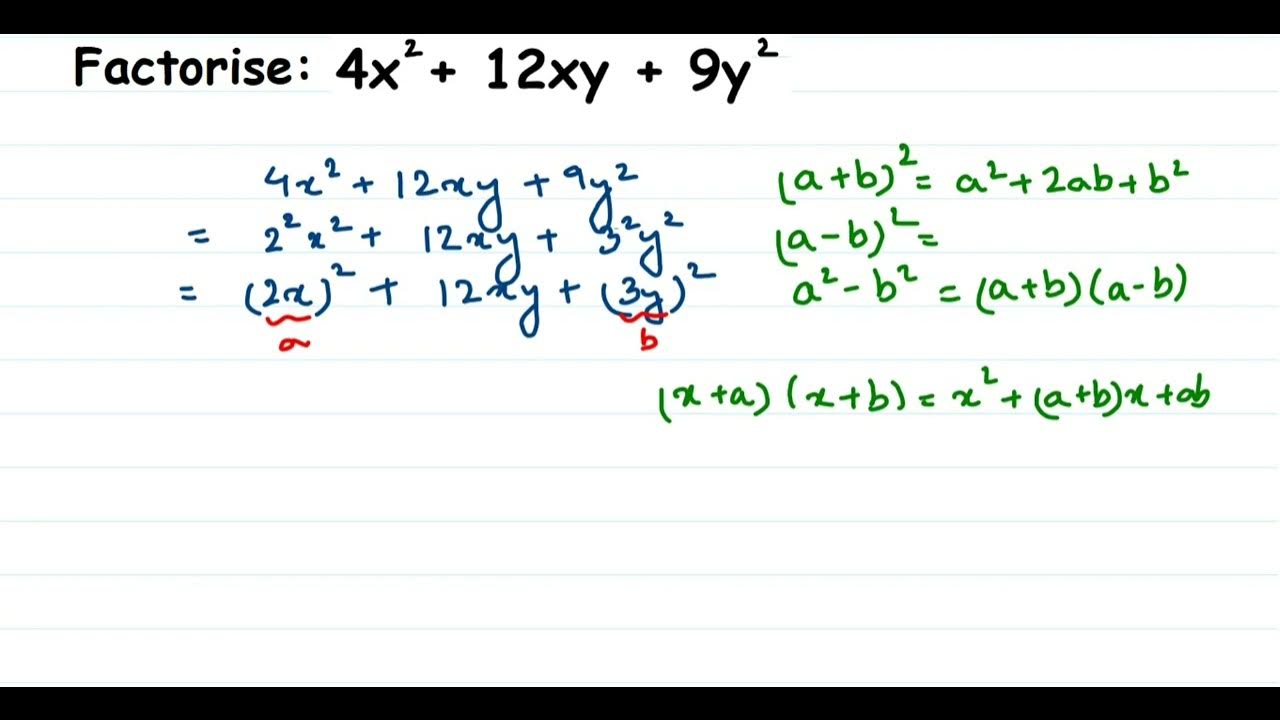 Factorise: 4x² + 12xy + 9y²
4x² + 12xy + 9y²
= 2²x² + 12xy + 3²y²
= (2x)² + 12xy + (3y)²
a b
(a+b)² = a² + 2ab + b²
(a-b)² =
a² - b² = (a+b)(a-b)
(x+a)(x+b) = x² + (a+b)x + ab